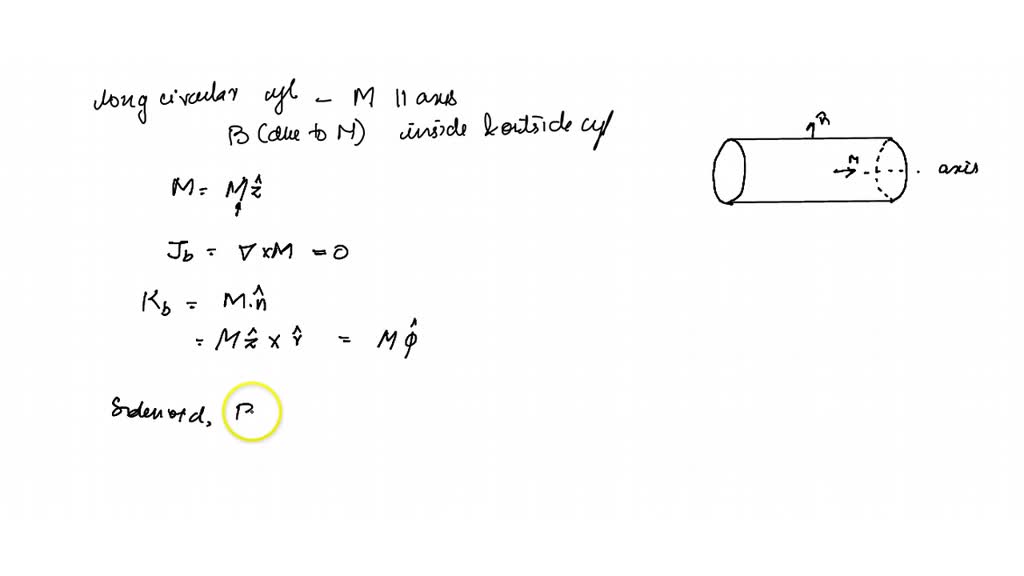 long circular cyl – M || axis
B (due to M) inside & outside cyl
M = M ẑ
J_b = ∇ × M = 0
K_b = M . n̂
= M ẑ × r̂ = M ϕ̂
Solenoid, B
R
M
axis